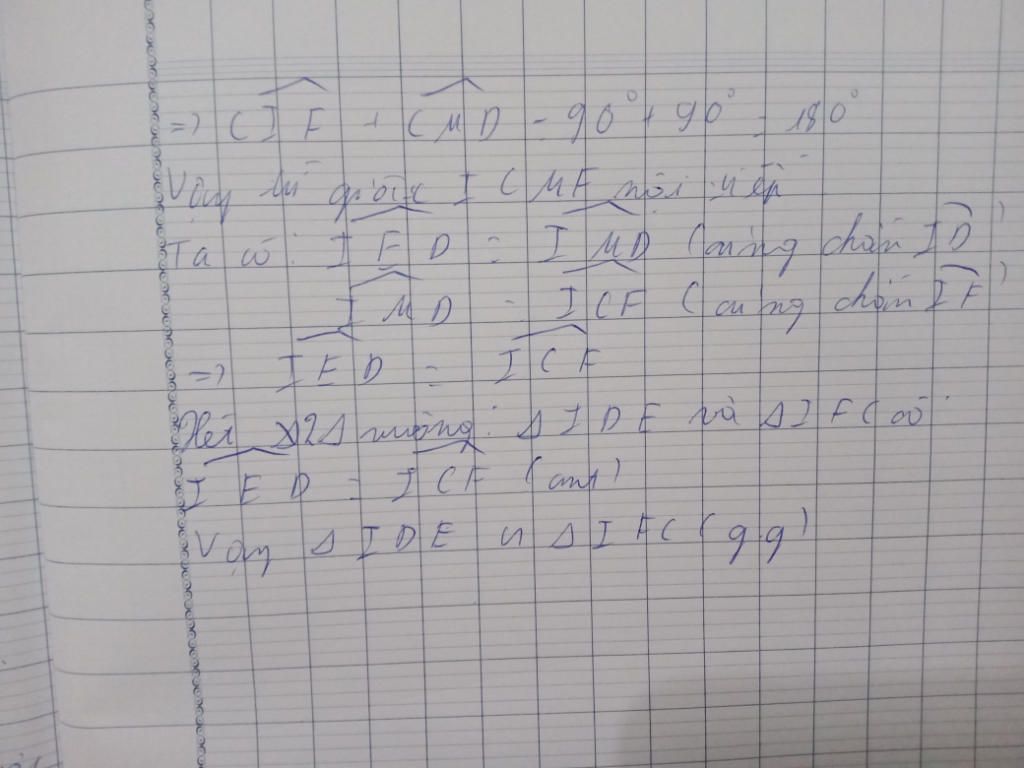 => CIF + CMD = 90° + 90° = 180°
Vậy tứ giác ICMF nội tiếp
Ta có: IED = IMD (cùng chắn ID)
IMD = ICF (cùng chắn IF)
=> IED = ICF
Xét 2Δ vuông: ΔIDE và ΔIFC có:
IED = ICF (cmt)
Vậy ΔIDE ∽ ΔIFC (g.g)